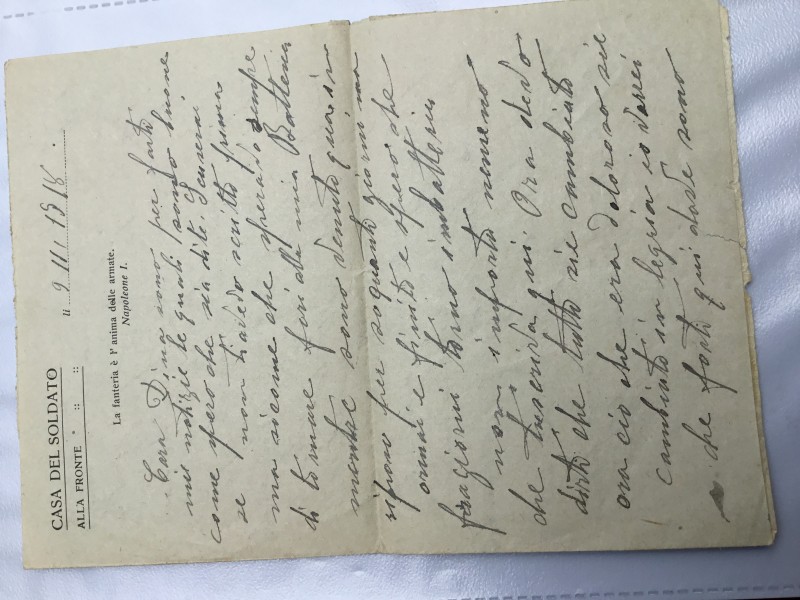 CASA DEL SOLDATO
ALLA FRONTE
li 9 III 1918.
La fanteria è l'anima delle armate.
Napoleone I.
Cara Dina sono per farti
mie notizie le quali sono buone
come spero che sia di te. Scuserai
se non ti avedo scritto prima
ma sicome che sperado sempre
di tornare fori alla mia Batteria
mentre sono venuto qua in
riposo per soquanti giorni ma
ormai e finito e spero che
fragiorni torno imbatteria
non importa nemeno
che tuscriva qui. Ora devo
dirti che tutto sie cambiato
ora ciò che era doloroso sie
cambiato in legria io
che forti qui dove sono